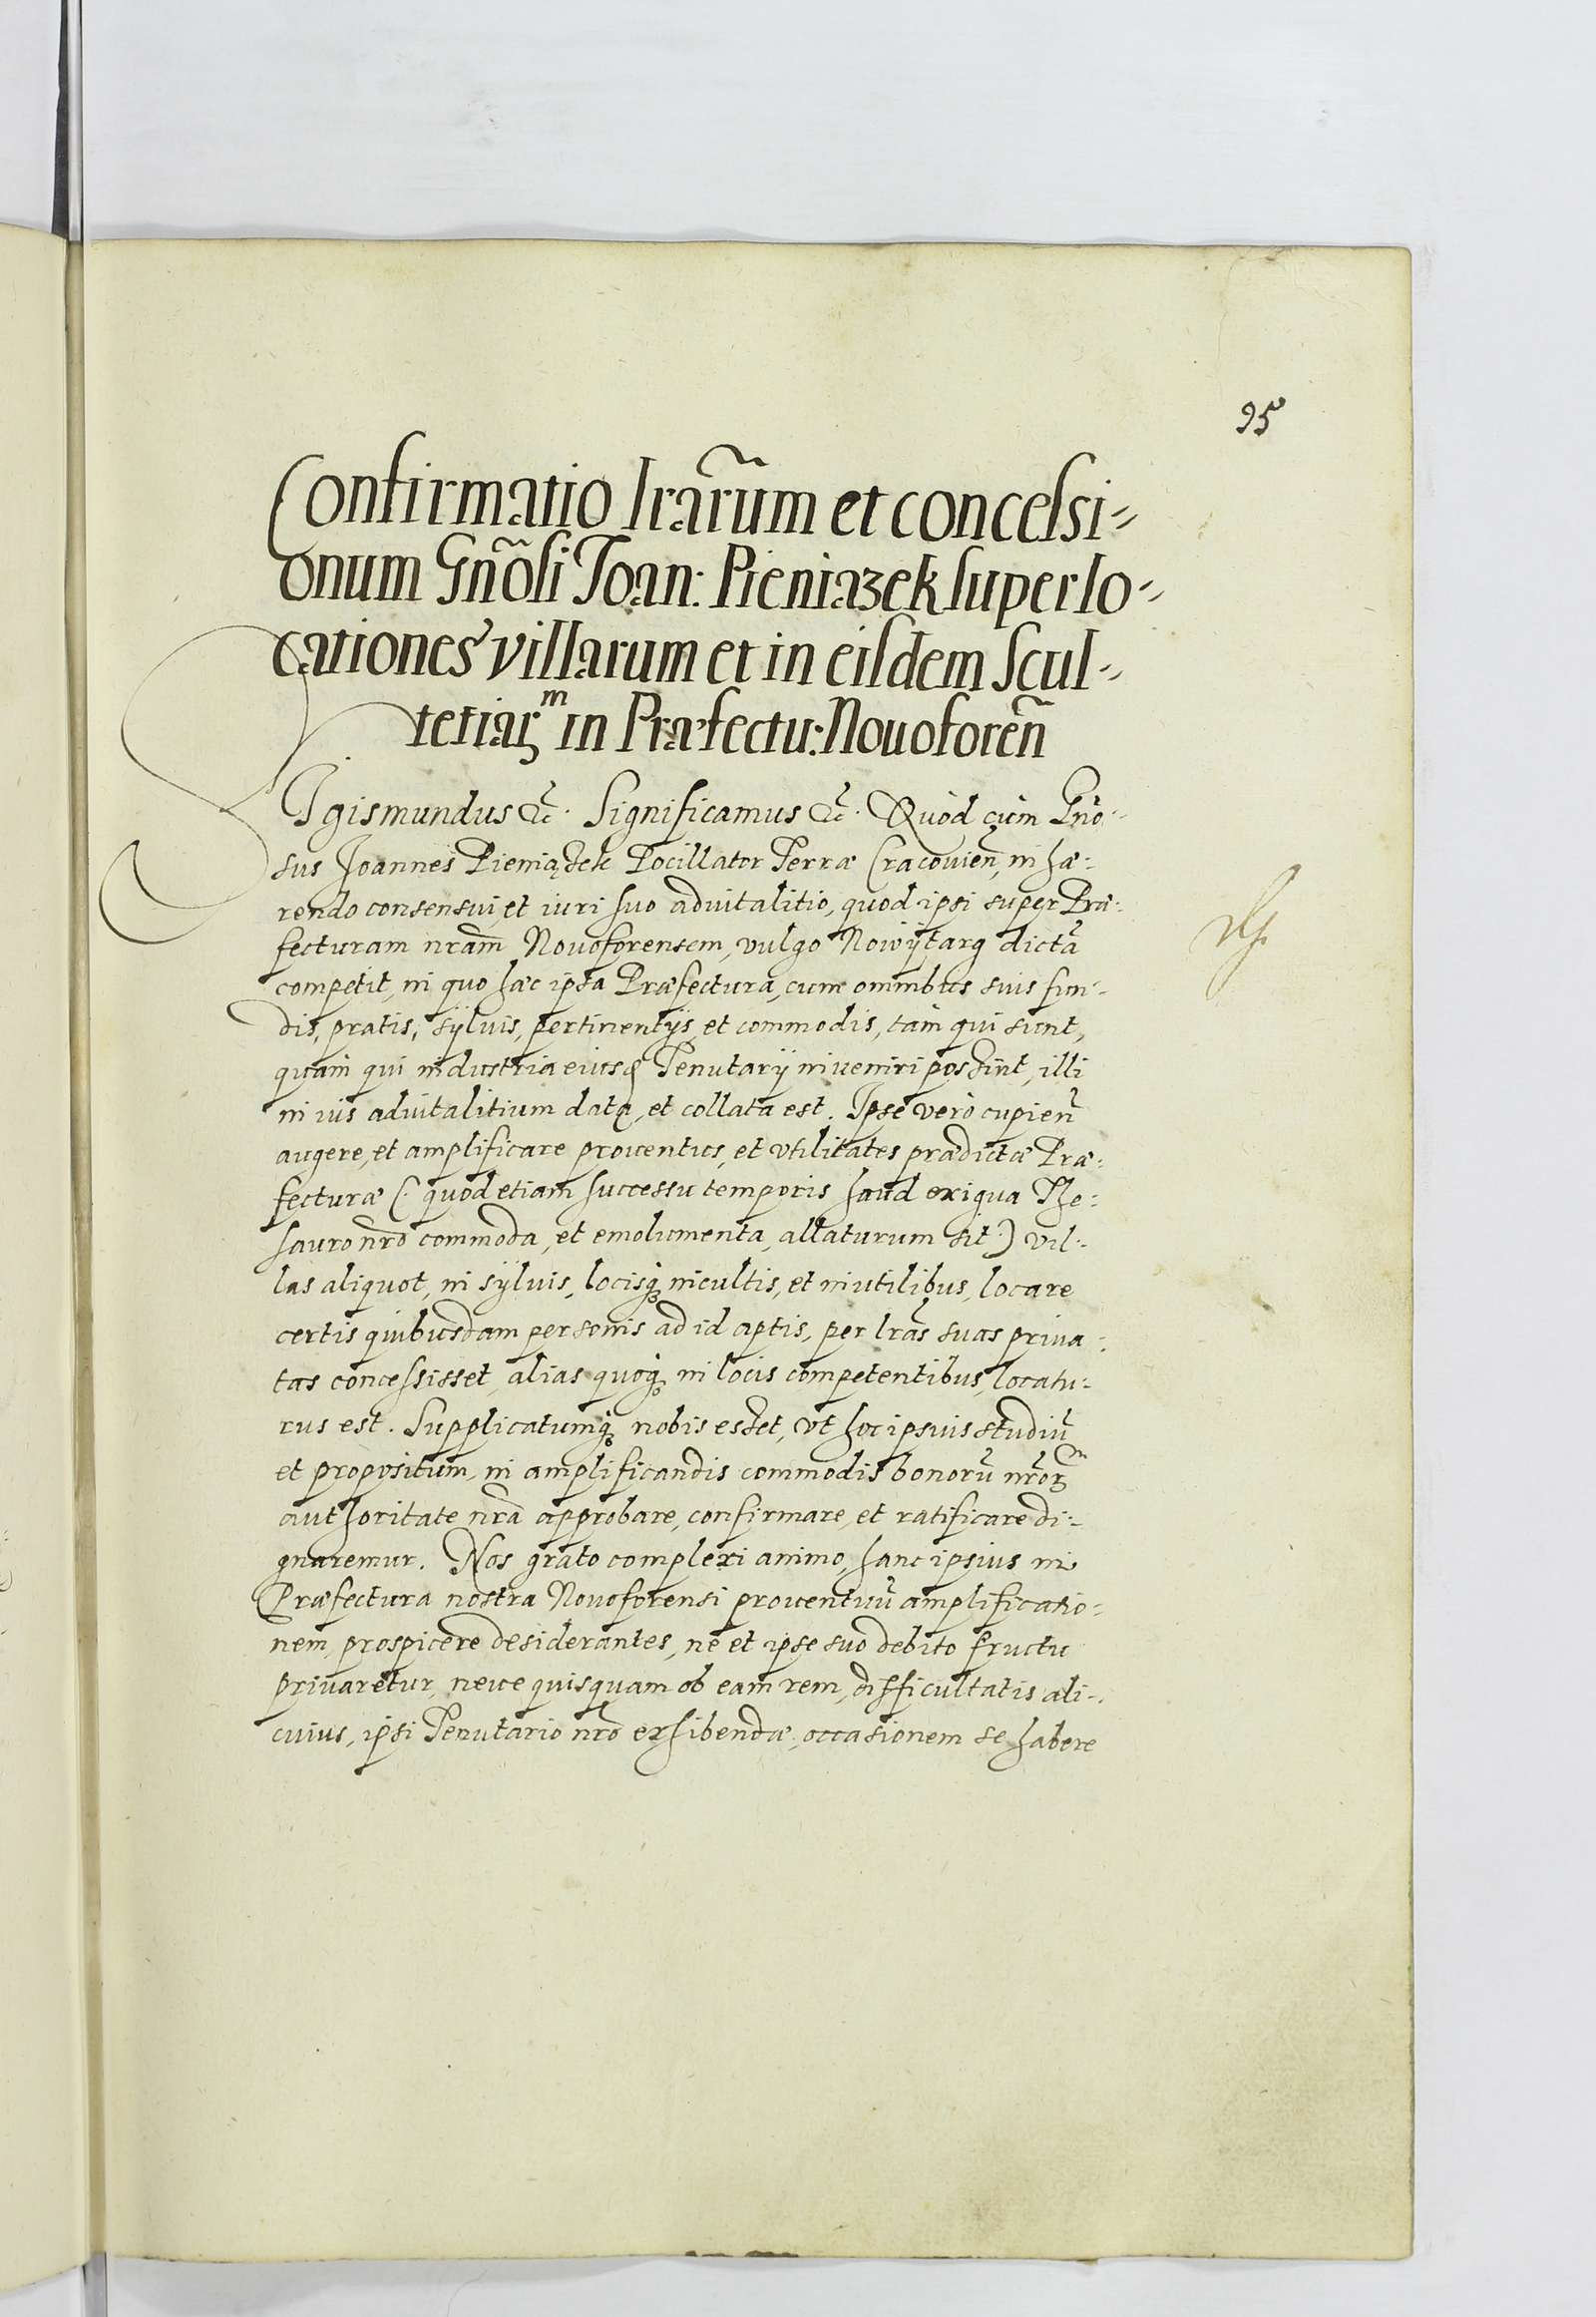 95
Confirmatio lrãrum et concessi-
onum Gñosi Joan: Pieniazek super lo-
cationes villarum et in eisdem Scul-
tetiaꝝᵐ in Præfectu: Novoforeñ
Sigismundus &c̃. Significamus &c̃. Quòd cùm Gño-
sus Joannes Pieniązek Pocillator Terræ Cracouieñ, in hæ-
rendo consensui et iuri suo aduitalitio, quod ipsi super Præ-
fecturam nrãm Nouoforensem, vulgo Nowÿtarg dictã
competit, in quo hæc ipsa Præfectura, cum omnibus suis fun-
dis, pratis, sÿluis, pertinentijs, et commodis, tàm qui sunt,
quàm qui industria eiusđ Tenutarij inueniri possint, illi
in ius aduitalitium data, et collata est. Ipse verò cupieñ
augere, et amplificare prouentus, et vtilitates prædictæ Præ-
fecturæ (: quod etiam successu temporis haud exigua The-
sauro nrõ commoda, et emolumenta, allaturum sit :) vil-
las aliquot, in sÿluis, locisq́ꝫ incultis, et inutilibus, locare
certis quibusdam personis ad id aptis, per lrãs suas priua-
tas concessisset, alias quoq́ꝫ in locis competentibus, locatu-
rus est. Supplicatumq́ꝫ nobis esset, vt hoc ipsius studiũ
et propositum, in amplificandis commodis bonorũ nrõꝝᵐ
authoritate nrã approbare, confirmare, et ratificare di-
gnaremur. Nos grato complexi animo, hanc ipsius in
Præfectura nostra Nouoforensi prouentuũ amplificatio-
nem, prospicere desiderantes, ne et ipse suo debito fructu
priuaretur, neue quisquam ob eam rem, difficultatis ali-
cuius, ipsi Tenutario nrõ exhibendæ, occasionem se habere